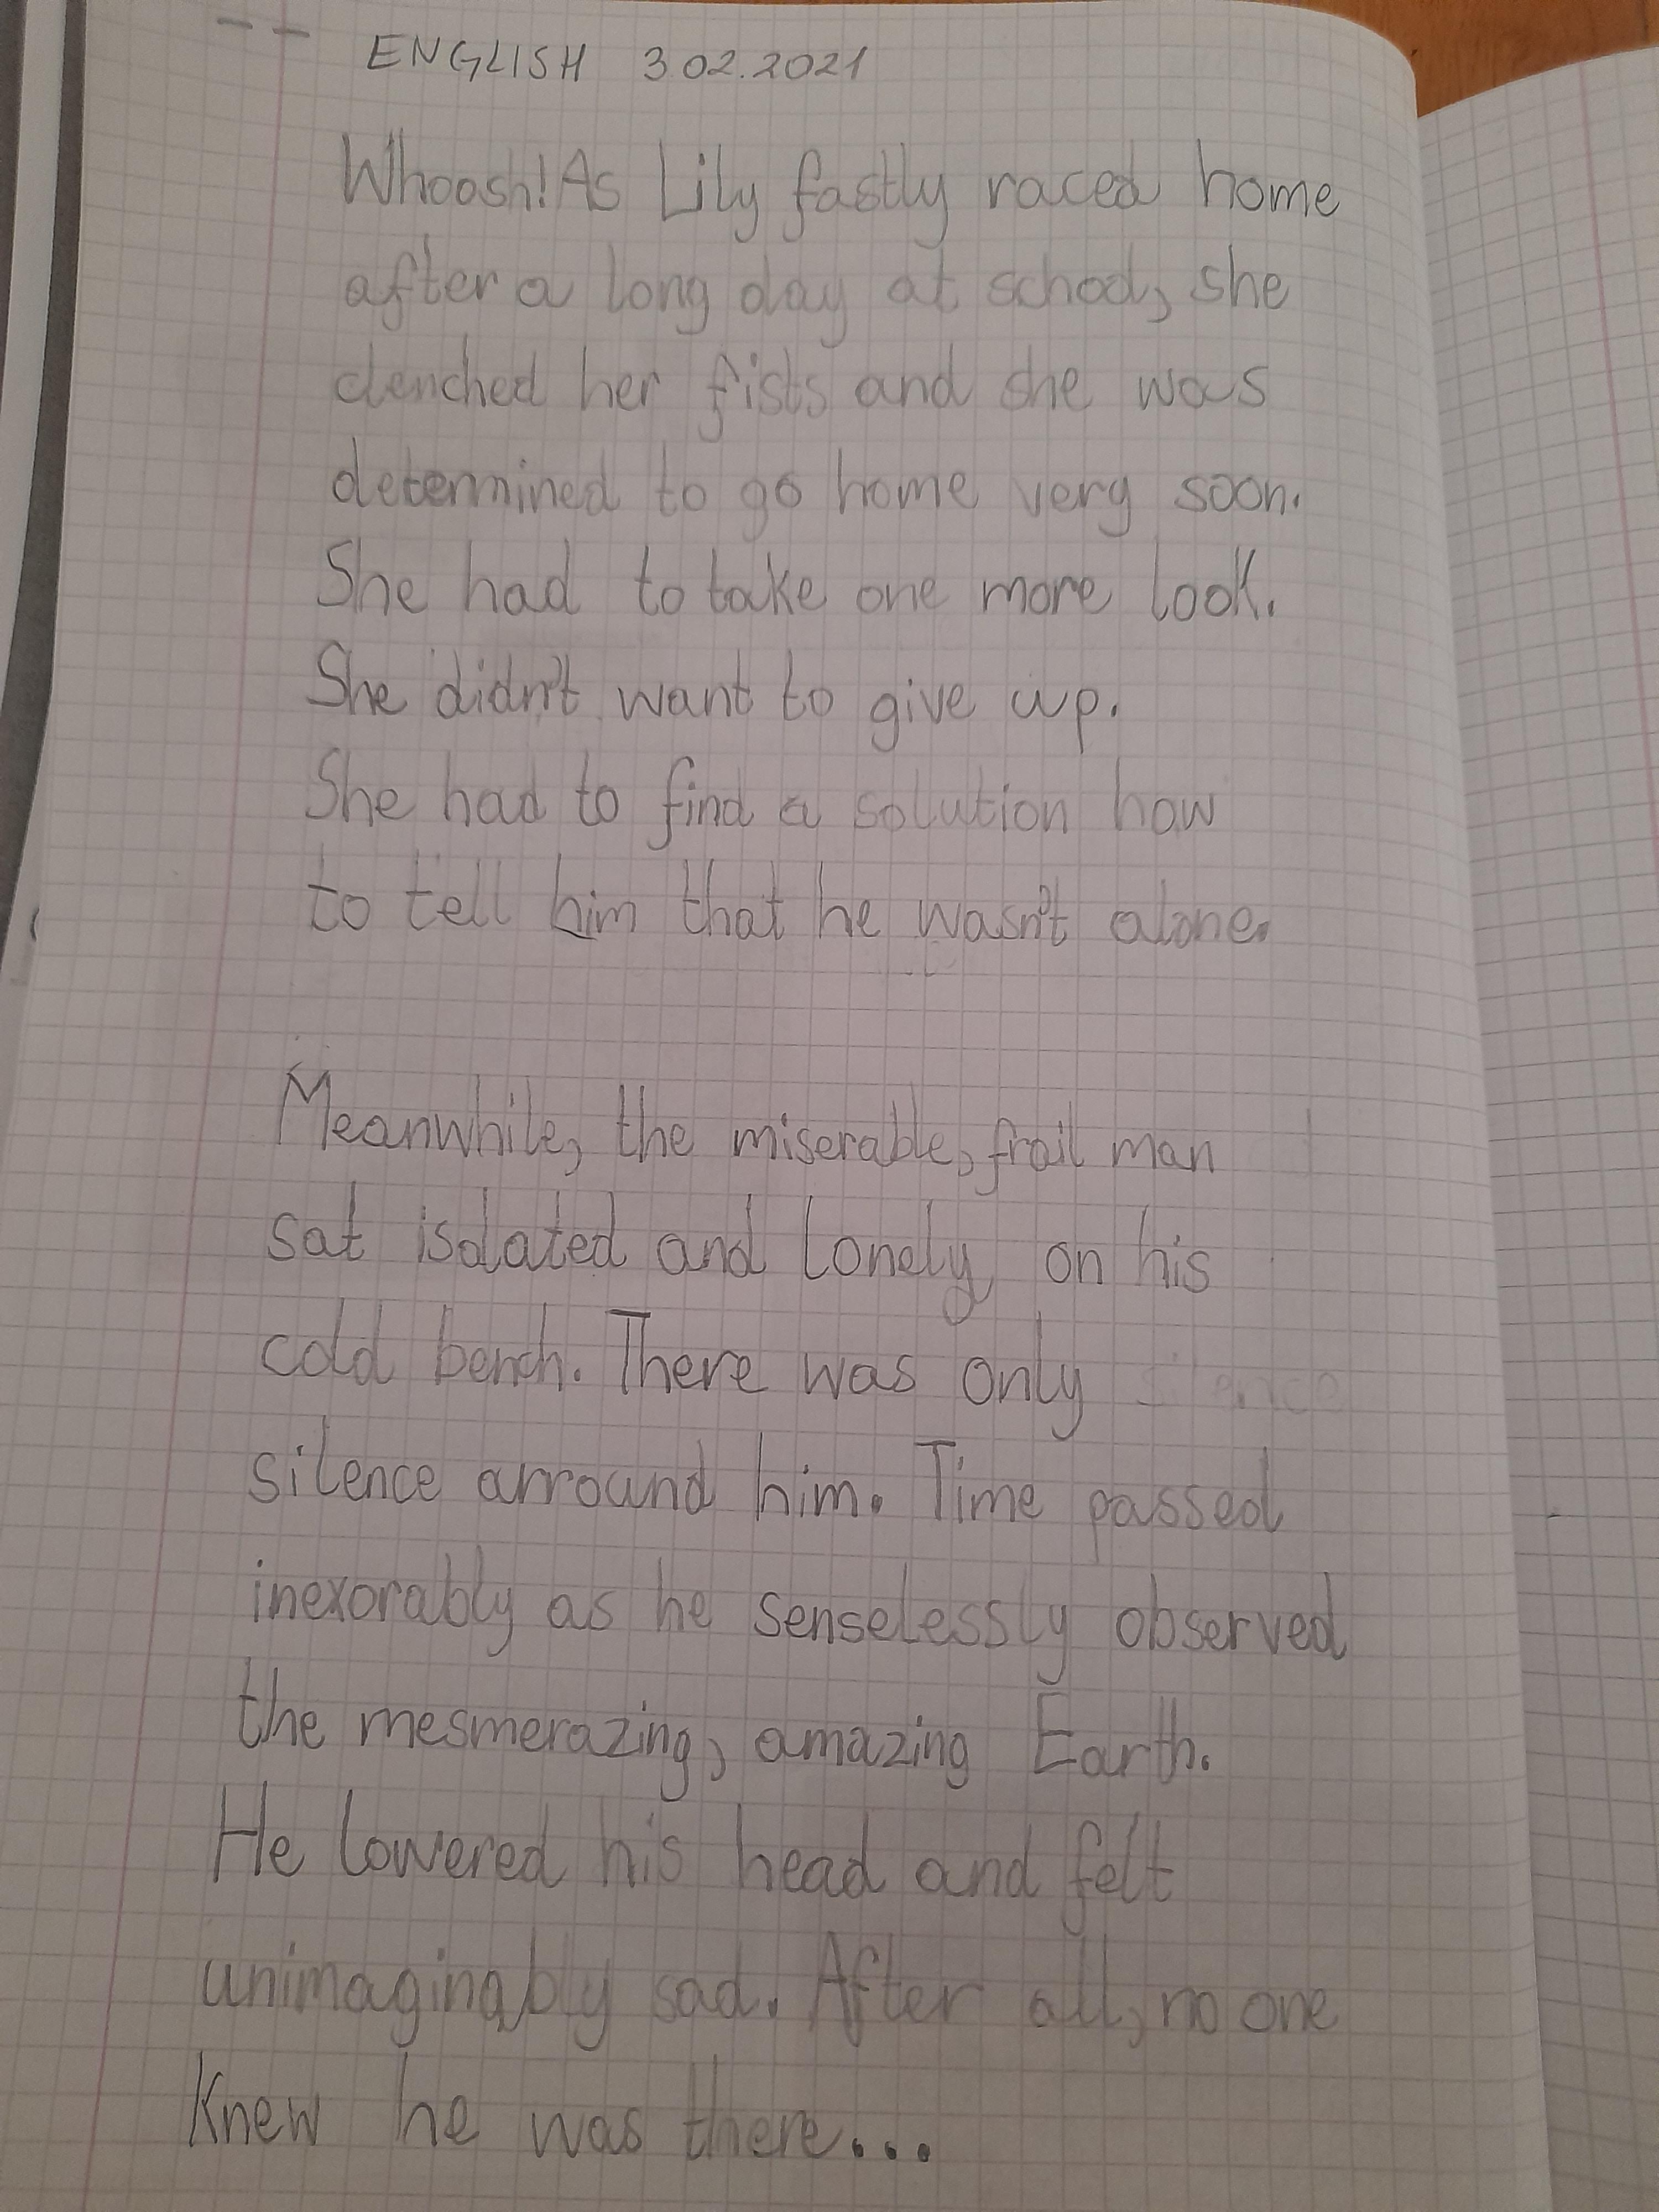 ENGLISH 3.02.2021
Whoosh! As Lily fastly raced home
after a long day at school, she
clenched her fists and she was
determined to go home very soon.
She had to take one more look.
She didn't want to give up.
She had to find a solution how
to tell him that he wasn't alone.
Meanwhile, the miserable, frail man
sat isolated and lonely on his
cold bench. There was only silence
silence arround him. Time passed
inexorably as he senselessly observed
the mesmerazing, amazing Earth.
He lowered his head and felt
unimaginably sad. After all, no one
knew he was there...